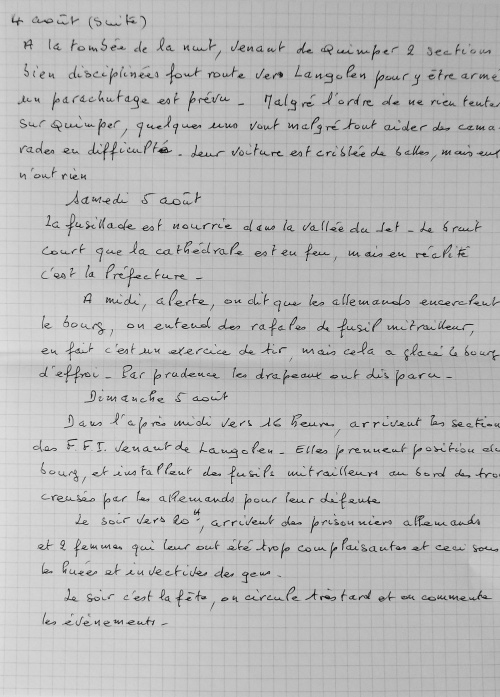 4 août (suite)
A la tombée de la nuit, venant de Quimper 2 sections
bien disciplinées font route vers Langolen pour y être armé
un parachutage est prévu - Malgré l'ordre de ne rien tenter
sur Quimper, quelques uns vont malgré tout aider des cama-
rades en difficulté - Leur voiture est criblée de balles, mais eux
n'ont rien
Samedi 5 août
La fusillade est nourrie dans la vallée du Jet - Le bruit
court que la cathédrale est en feu, mais en réalité
c'est la Préfecture -
A midi, alerte, on dit que les allemands encerclent
le bourg, on entend des rafales de fusil mitrailleur,
en fait c'est un exercice de tir, mais cela a glacé le bourg
d'effroi - Par prudence les drapeaux ont disparu -
Dimanche 5 août
Dans l'après midi vers 16 heures, arrivent les section
des F.F.I. venant de Langolen - Elles prennent position
bourg, et installent des fusils mitrailleurs au bord des trou
creusés par les allemands pour leur défense
Le soir vers 20H, arrivent des prisonniers allemands
et 2 femmes qui leur ont été trop complaisantes et ceci sous
les huées et invectives des gens -
Le soir c'est la fête, on circule très tard et on commente
les évènements -